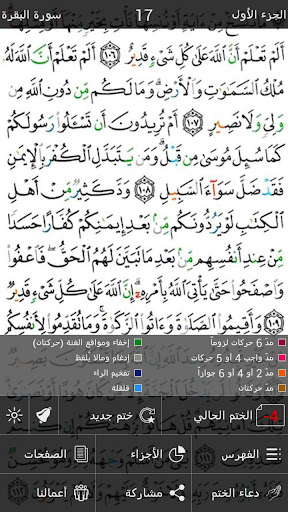 الجزء الأول 17 سورة البقرة
أَلَمْ تَعْلَمْ أَنَّ ٱللَّهَ عَلَىٰ كُلِّ شَىْءٍ قَدِيرٌ ۝١٠٦ أَلَمْ تَعْلَمْ أَنَّ ٱللَّهَ لَهُۥ
مُلْكُ ٱلسَّمَٰوَٰتِ وَٱلْأَرْضِ ۗ وَمَا لَكُم مِّن دُونِ ٱللَّهِ مِن
وَلِىٍّ وَلَا نَصِيرٍ ۝١٠٧ أَمْ تُرِيدُونَ أَن تَسْـَٔلُوا۟ رَسُولَكُمْ
كَمَا سُئِلَ مُوسَىٰ مِن قَبْلُ ۗ وَمَن يَتَبَدَّلِ ٱلْكُفْرَ بِٱلْإِيمَٰنِ
فَقَدْ ضَلَّ سَوَآءَ ٱلسَّبِيلِ ۝١٠٨ وَدَّ كَثِيرٌ مِّنْ أَهْلِ
ٱلْكِتَٰبِ لَوْ يَرُدُّونَكُم مِّنۢ بَعْدِ إِيمَٰنِكُمْ كُفَّارًا حَسَدًا
مِّنْ عِندِ أَنفُسِهِم مِّنۢ بَعْدِ مَا تَبَيَّنَ لَهُمُ ٱلْحَقُّ ۖ فَٱعْفُوا۟
وَٱصْفَحُوا۟ حَتَّىٰ يَأْتِىَ ٱللَّهُ بِأَمْرِهِۦٓ ۗ إِنَّ ٱللَّهَ عَلَىٰ كُلِّ شَىْءٍ قَدِيرٌ
۝١٠٩ وَأَقِيمُوا۟ ٱلصَّلَوٰةَ وَءَاتُوا۟ ٱلزَّكَوٰةَ ۚ وَمَا تُقَدِّمُوا۟ لِأَنفُسِكُم
مدّ 6 حركات لزوماً إخفاء ومواقع الغنة (حركتان)
مدّ واجب 4 أو 5 حركات إدغام ومالا يُلفظ
مدّ 2 أو 4 أو 6 جوازاً تفخيم الراء
مدّ حركتان قلقلة
-4 الختم الحالي ختم جديد
الفهرس الأجزاء الصفحات
دعاء الختم مشاركة أعمالنا